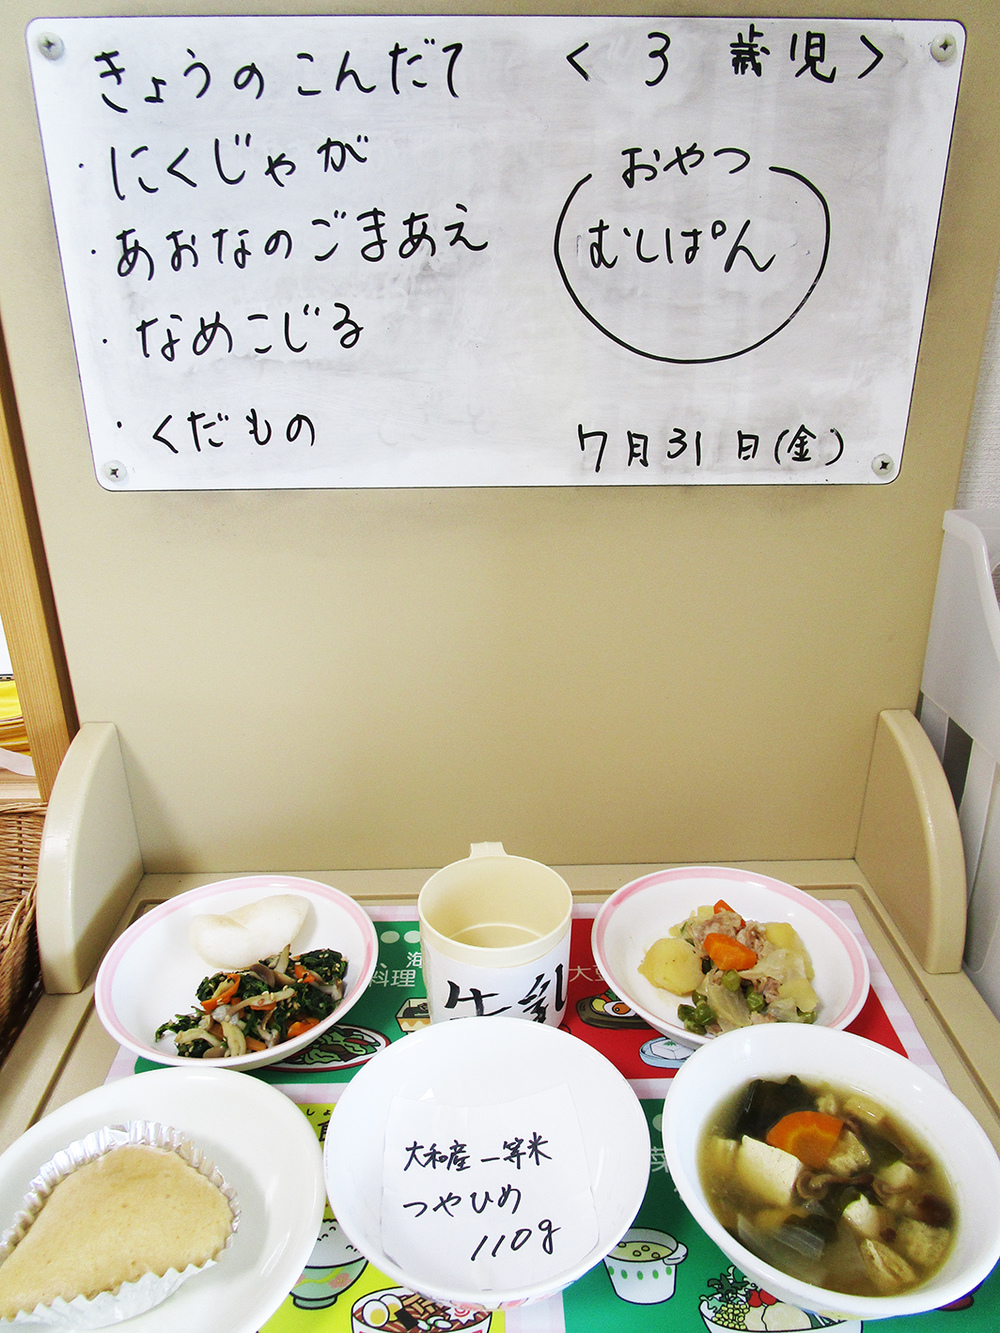 きょうのこんだて
<3歳児>
・にくじゃが
・あおなのごまあえ
・なめこじる
・くだもの
おやつ
むしぱん
7月31日(金)
牛乳
海
料理
大豆
しょ
菜
大和産一等米
つやひめ
110g